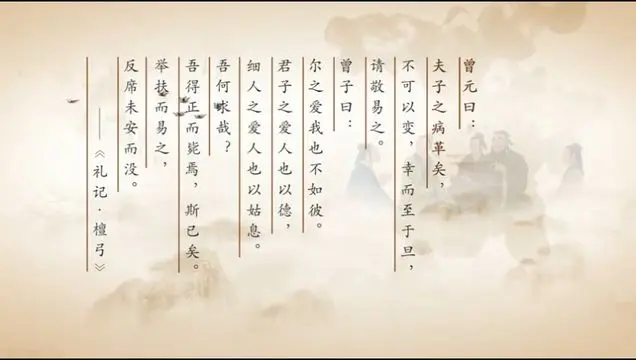 曾元曰：
夫子之病革矣，
不可以变，幸而至于旦，
请敬易之。
曾子曰：
尔之爱我也不如彼。
君子之爱人也以德，
细人之爱人也以姑息。
吾何求哉？
吾得正而毙焉，斯已矣。
举扶而易之，
反席未安而没。
——《礼记·檀弓》